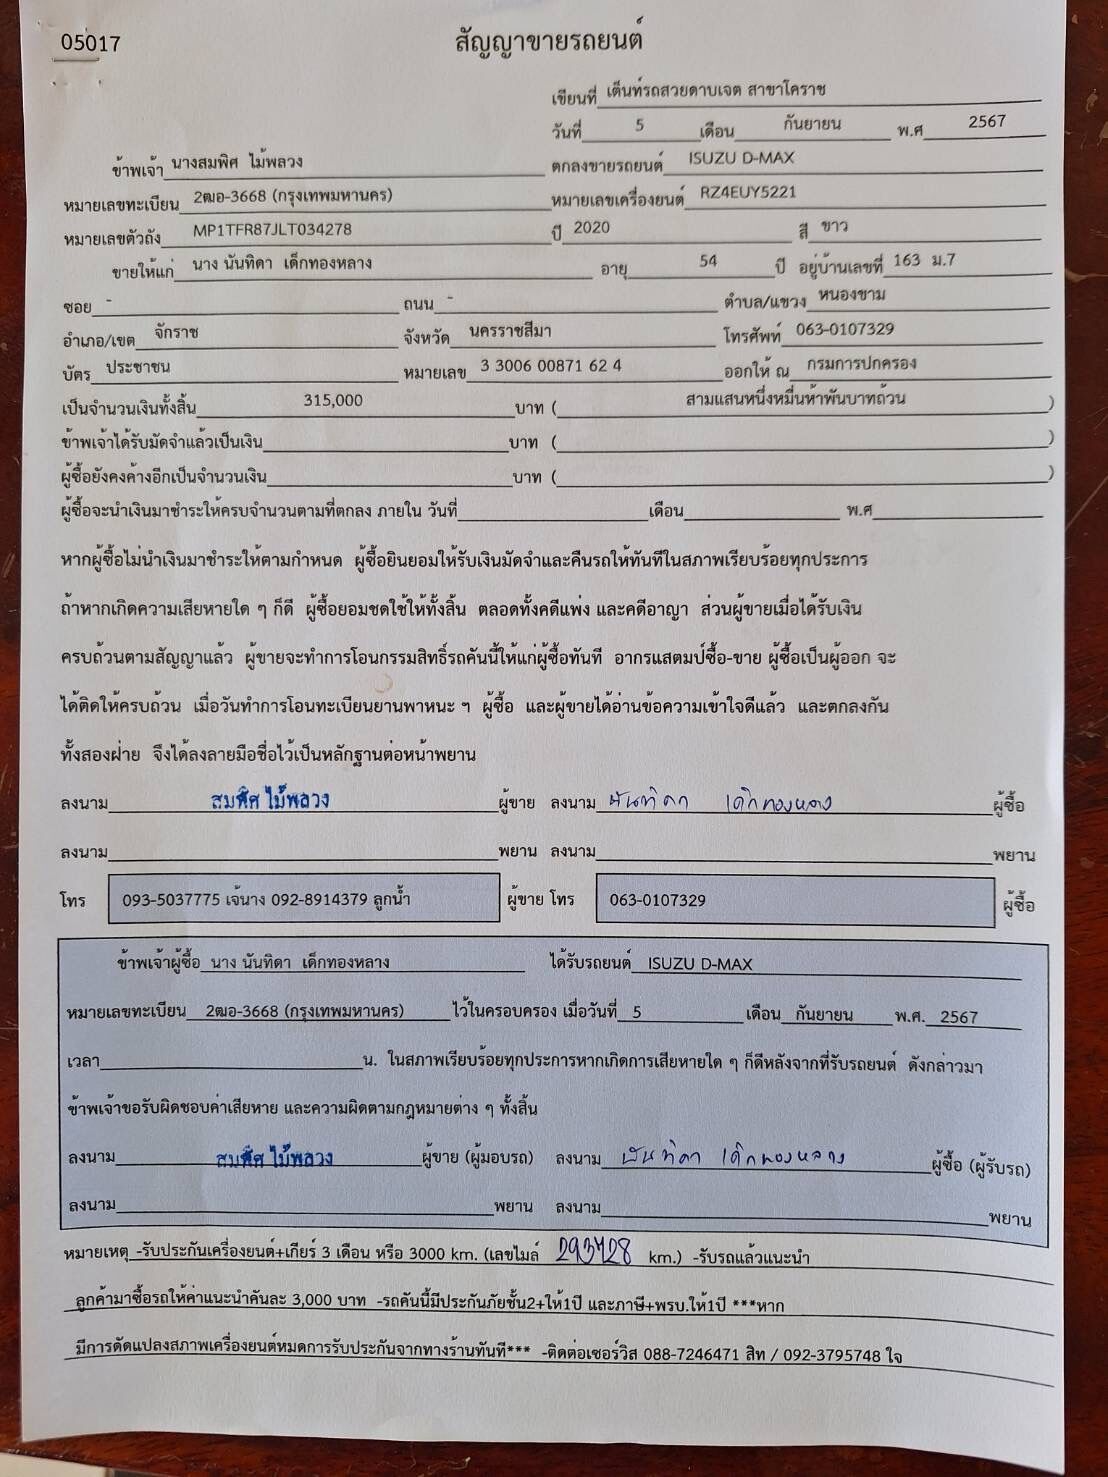 05017
สัญญาขายรถยนต์
เขียนที่ เต็นท์รถสวยดาบเจต สาขาโคราช
วันที่ 5 เดือน กันยายน พ.ศ 2567
ข้าพเจ้า นางสมพิศ ไม้พลวง ตกลงขายรถยนต์ ISUZU D-MAX
หมายเลขทะเบียน 2ฒอ-3668 (กรุงเทพมหานคร) หมายเลขเครื่องยนต์ RZ4EUY5221
หมายเลขตัวถัง MP1TFR87JLT034278 ปี 2020 สี ขาว
ขายให้แก่ นาง นันทิดา เด็กทองหลาง อายุ 54 ปี อยู่บ้านเลขที่ 163 ม.7
ซอย - ถนน - ตำบล/แขวง หนองขาม
อำเภอ/เขต จักราช จังหวัด นครราชสีมา โทรศัพท์ 063-0107329
บัตร ประชาชน หมายเลข 3 3006 00871 62 4 ออกให้ ณ กรมการปกครอง
เป็นจำนวนเงินทั้งสิ้น 315,000 บาท ( สามแสนหนึ่งหมื่นห้าพันบาทถ้วน )
ข้าพเจ้าได้รับมัดจำแล้วเป็นเงิน บาท ( )
ผู้ซื้อยังคงค้างอีกเป็นจำนวนเงิน บาท ( )
ผู้ซื้อจะนำเงินมาชำระให้ครบจำนวนตามที่ตกลง ภายใน วันที่ เดือน พ.ศ
หากผู้ซื้อไม่นำเงินมาชำระให้ตามกำหนด ผู้ซื้อยินยอมให้รับเงินมัดจำและคืนรถให้ทันทีในสภาพเรียบร้อยทุกประการ
ถ้าหากเกิดความเสียหายใด ๆ ก็ดี ผู้ซื้อยอมชดใช้ให้ทั้งสิ้น ตลอดทั้งคดีแพ่ง และคดีอาญา ส่วนผู้ขายเมื่อได้รับเงิน
ครบถ้วนตามสัญญาแล้ว ผู้ขายจะทำการโอนกรรมสิทธิ์รถคันนี้ให้แก่ผู้ซื้อทันที อากรแสตมป์ซื้อ-ขาย ผู้ซื้อเป็นผู้ออก จะ
ได้ติดให้ครบถ้วน เมื่อวันทำการโอนทะเบียนยานพาหนะ ฯ ผู้ซื้อ และผู้ขายได้อ่านข้อความเข้าใจดีแล้ว และตกลงกัน
ทั้งสองฝ่าย จึงได้ลงลายมือชื่อไว้เป็นหลักฐานต่อหน้าพยาน
ลงนาม สมพิศ ไม้พลวง ผู้ขาย ลงนาม นันทิดา เด็กทองหลาง ผู้ซื้อ
ลงนาม พยาน ลงนาม พยาน
โทร 093-5037775 เจ้นาง 092-8914379 ลูกน้ำ ผู้ขาย โทร 063-0107329 ผู้ซื้อ
ข้าพเจ้าผู้ซื้อ นาง นันทิดา เด็กทองหลาง ได้รับรถยนต์ ISUZU D-MAX
หมายเลขทะเบียน 2ฒอ-3668 (กรุงเทพมหานคร) ไว้ในครอบครอง เมื่อวันที่ 5 เดือน กันยายน พ.ศ. 2567
เวลา น. ในสภาพเรียบร้อยทุกประการหากเกิดการเสียหายใด ๆ ก็ดีหลังจากที่รับรถยนต์ ดังกล่าวมา
ข้าพเจ้าขอรับผิดชอบค่าเสียหาย และความผิดตามกฎหมายต่าง ๆ ทั้งสิ้น
ลงนาม สมพิศ ไม้พลวง ผู้ขาย (ผู้มอบรถ) ลงนาม นันทิดา เด็กทองหลาง ผู้ซื้อ (ผู้รับรถ)
ลงนาม พยาน ลงนาม พยาน
หมายเหตุ -รับประกันเครื่องยนต์+เกียร์ 3 เดือน หรือ 3000 km. (เลขไมล์ 293728 km.) -รับรถแล้วแนะนำ
ลูกค้ามาซื้อรถให้ค่าแนะนำคันละ 3,000 บาท -รถคันนี้มีประกันภัยชั้น2+ให้1ปี และภาษี+พรบ.ให้1ปี ***หาก
มีการดัดแปลงสภาพเครื่องยนต์หมดการรับประกันจากทางร้านทันที*** -ติดต่อเซอร์วิส 088-7246471 สิท / 092-3795748 ใจ